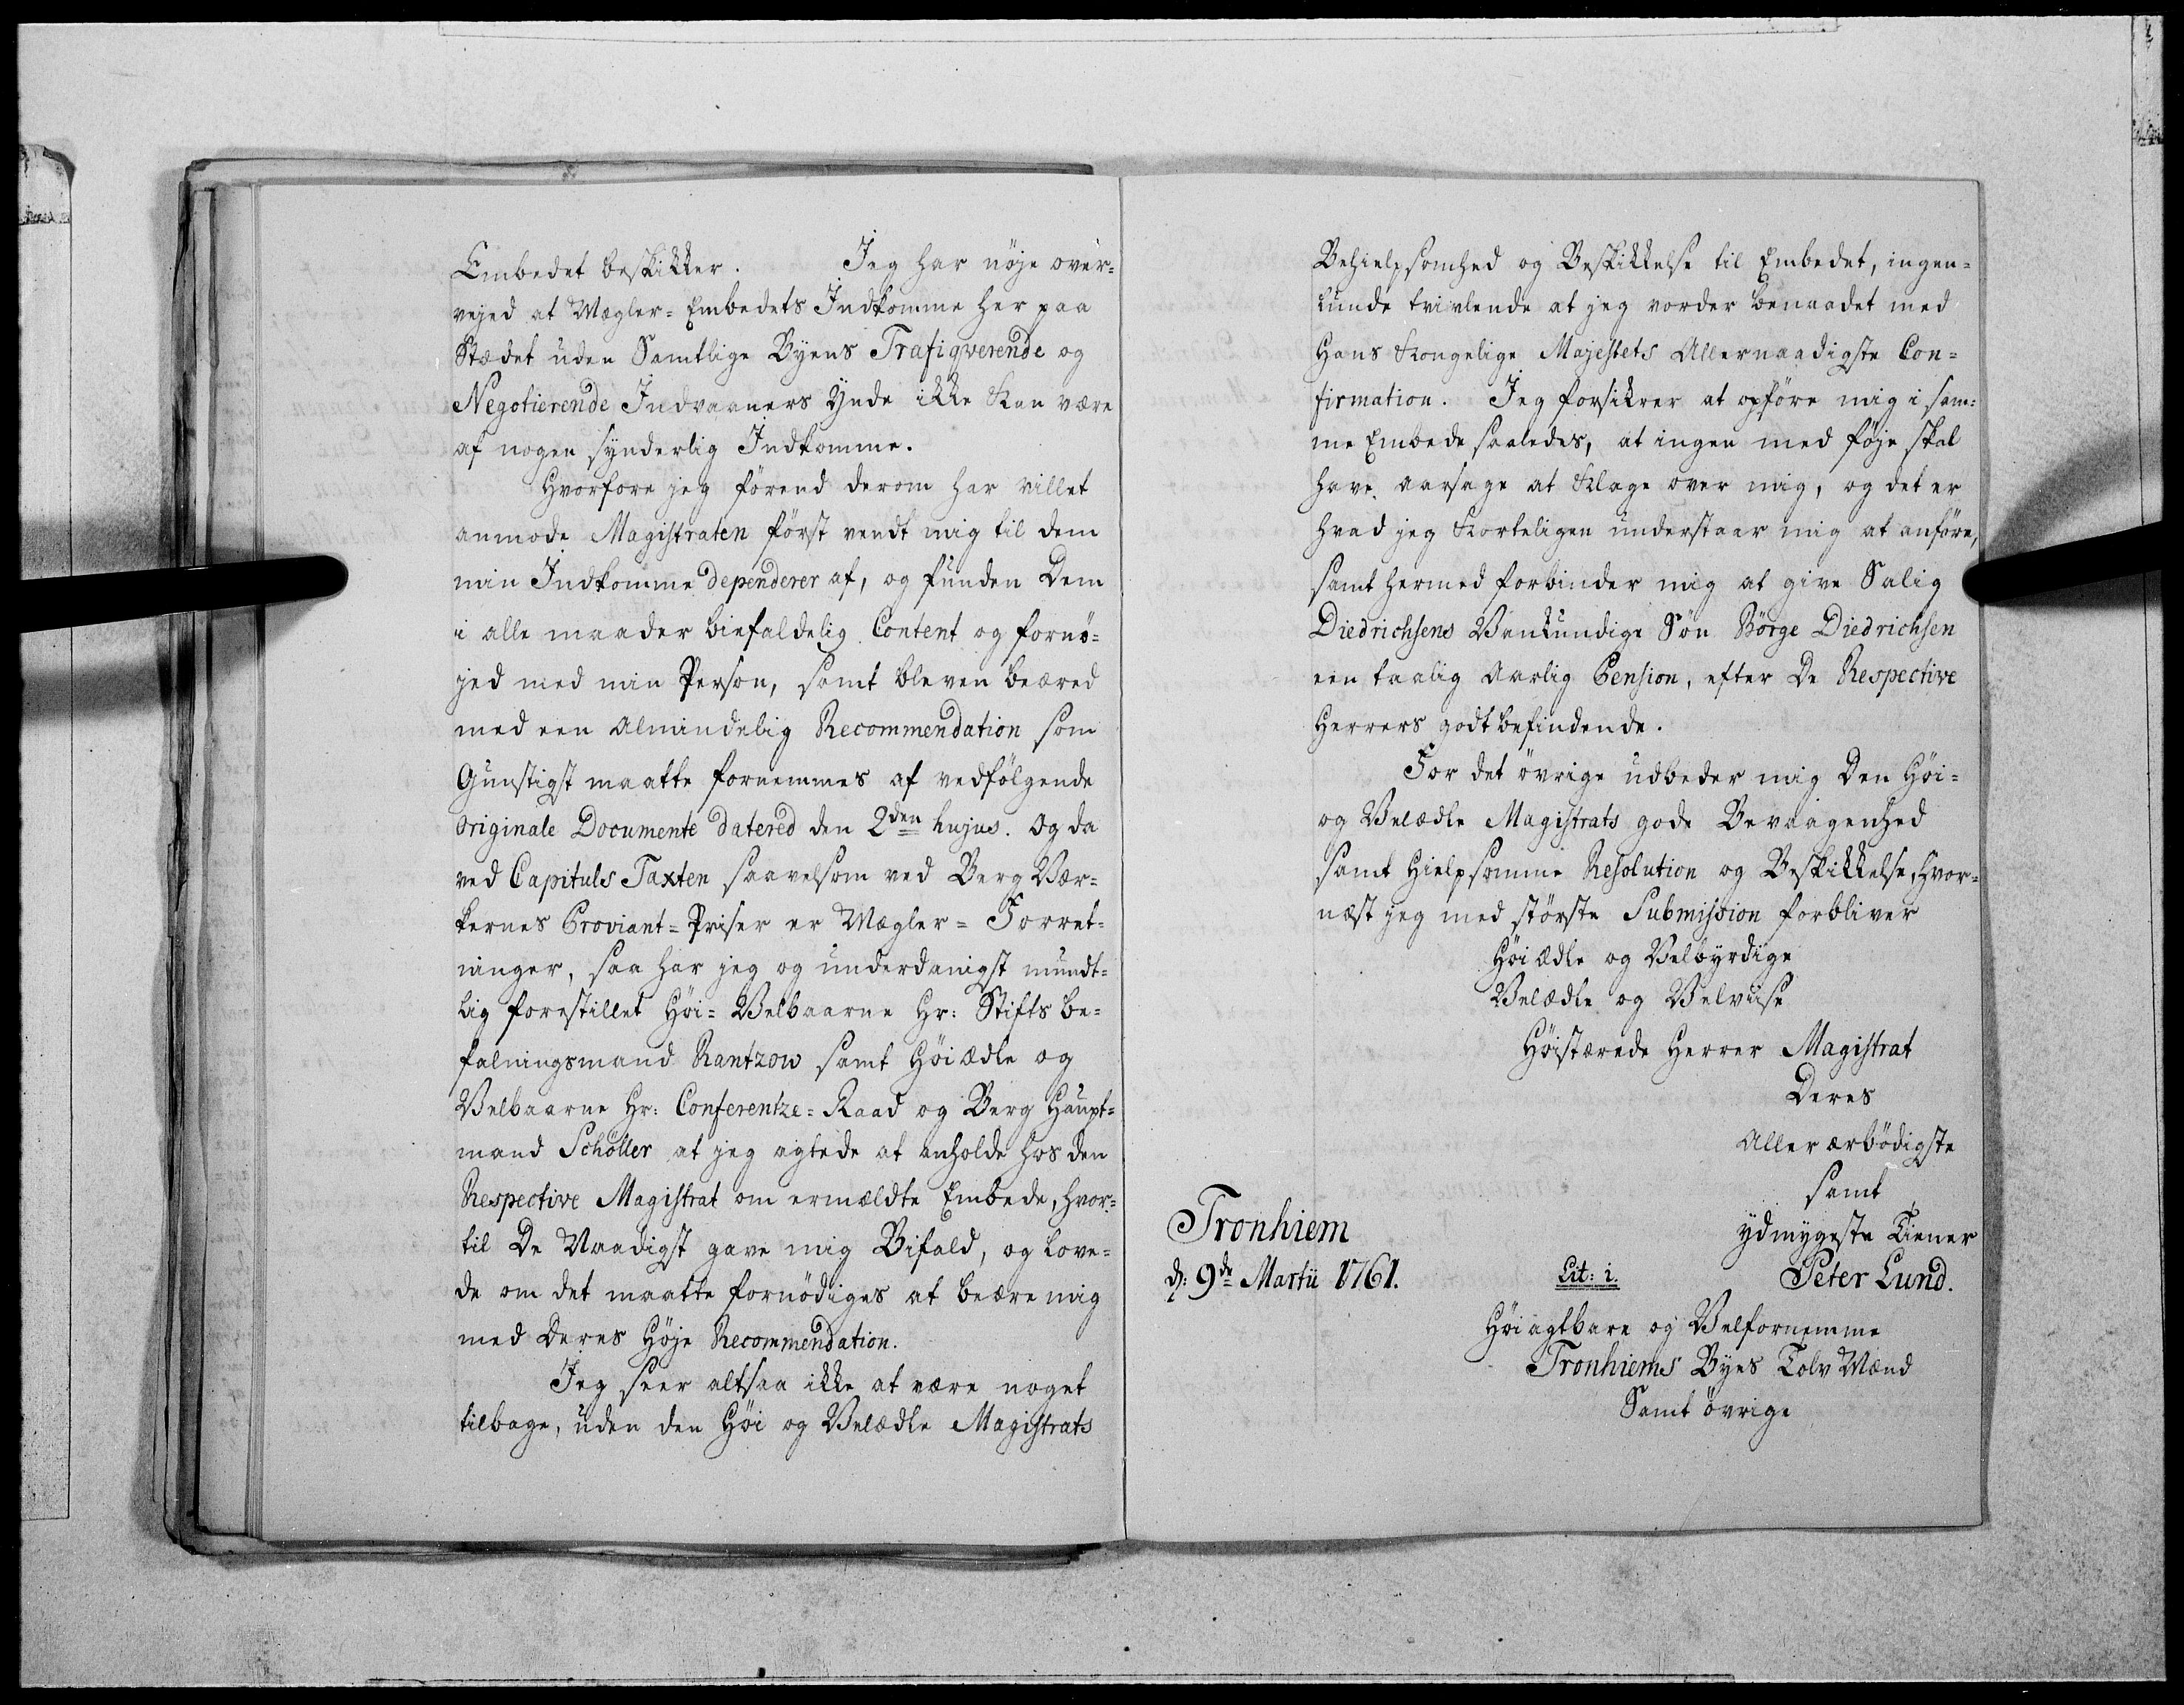 Embedet beskikker. Jeg har nöje over-
vejed at Mægler-Embedets Indkomme her paa
Stædet uden Samtlige Byens Trafiqverende og
Negotierende Indvaaners Ynde ikke kan være
af nogen synderlig Indkomme.
Hvorfore jeg förend derom har villet
anmode Magistraten först vendt mig til dem
min Indkomme dependerer af, og funden Dem
i alle maader biefaldelig Content og fornö-
jed med min Person, samt bleven beæred
med een Almindelig Recommendation som
Gunstigst maatte fornemmes af vedfölgende
originale Documente datered den 2den hujus. Og da
ved Capituls Taxten saavelsom ved Berg Vær-
kernes Proviant-Priser er Mægler-Forret-
ninger, saa har jeg og underdanigst mundt-
lig forestillet Höi-Velbaarne Hr: Stifts be-
falningsmand Rantzow samt Höiædle og
Velbaarne Hr: Conferentze-Raad og Berg Haupt-
mand Schöller at jeg agtede at anholde hos den
Respective Magistrat om ermældte Embede, hvor-
til De Naadigst gave mig Bifald, og love-
de om det maatte fornödiges at beære mig
med Deres Höje Recommendation.
Jeg seer altsaa ikke at være noget
tilbage, uden den Höi og Velædle Magistrats
Behielpsomhed og Beskikkelse til Embedet, ingen-
lunde tvivlende at jeg vorder benaadet med
Hans Kongelige Majestets Allernaadigste Con-
firmation. Jeg forsikrer at opföre mig i sam-
me Embede saaledes, at ingen med föje skal
have aarsage at Klage over mig, og det er
hvad jeg Korteligen understaar mig at anföre,
samt hermed forbinder mig at give Salig
Diedrichsens Vankundige Sön Börge Diedrichsen
een taalig Aarlig Pension, efter De Respective
Herrers godtbefindende.
For det övrige udbeder mig Den Höi-
og Velædle Magistrats gode Bevaagenhed
samt Hielpsomme Resolution og Beskikkelse, hvor-
næst jeg med störste Submission forbliver
Höiædle og Velbyrdige
Velædle og Velviise
Höistærede Herrer Magistrat
Deres
Allerærbödigste
samt
ydmygeste Tiener
Tronhiem
d: 9de Martii 1761. Lit: i. Peter Lund.
Höiagtbare og Velfornemme
Tronhiems Byes Tolv Mænd
Samt övrige